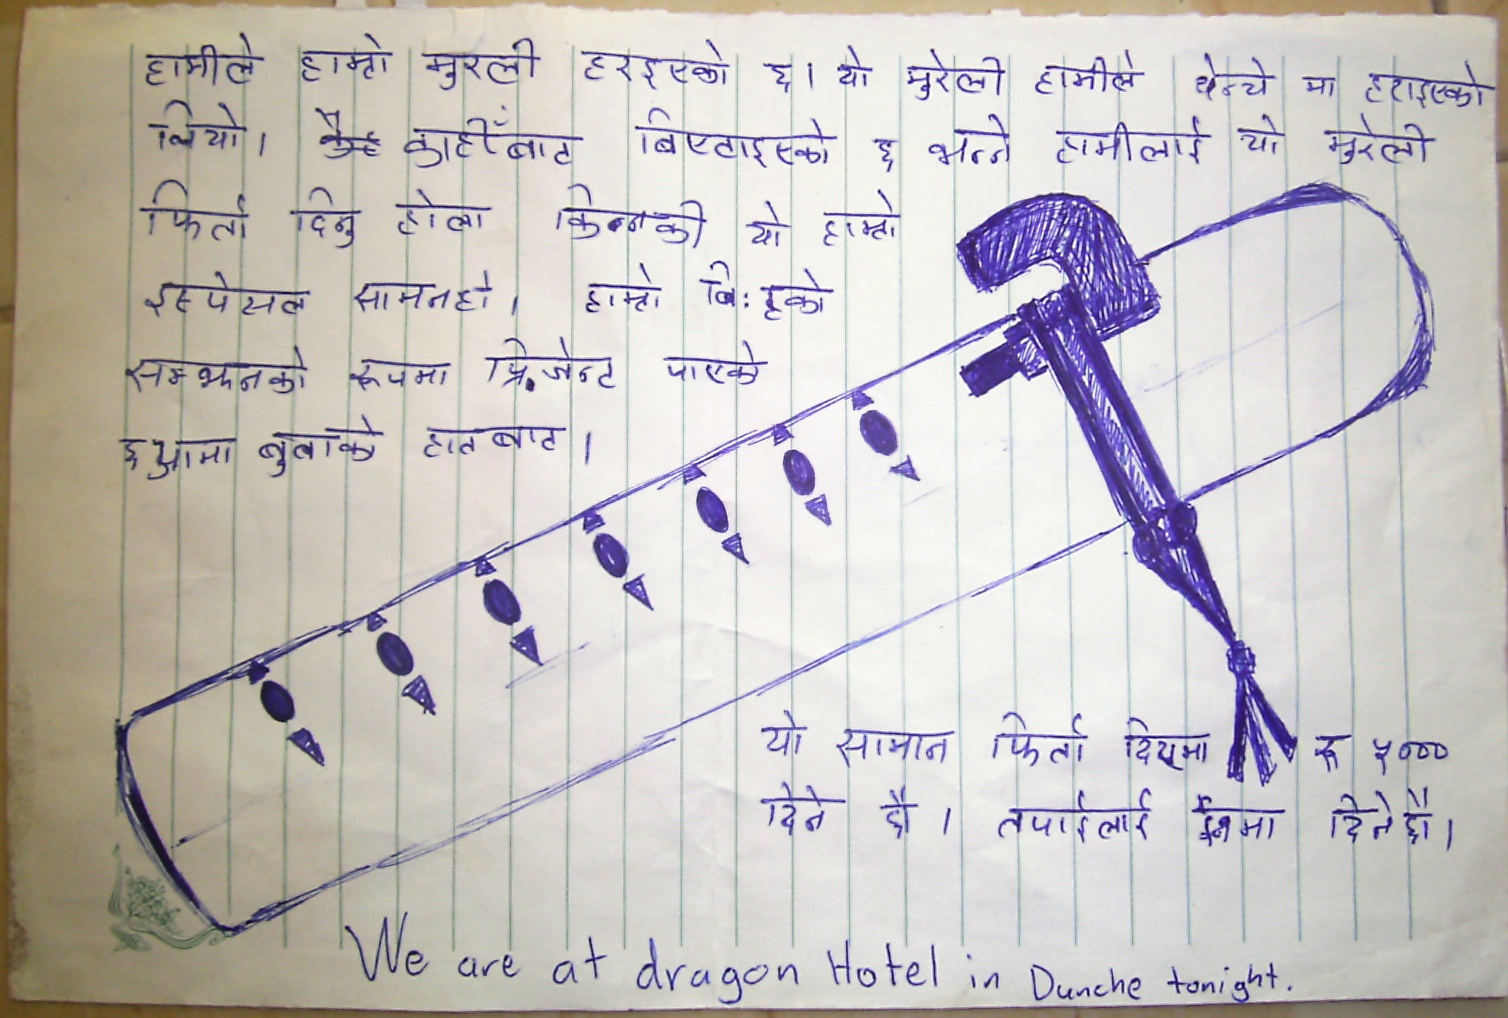 हामीले हाम्रो मुरली हरइएको छ। यो मुरेली हामीले थेन्चे मा हराइएको
थियो। काहीँबाट बिएटाइएको छ भन्ने हामीलाई यो मुरेली
फिर्ता दिनु होला किन्नकी यो हाम्रो
इस्पेसल सामनहो। हाम्रो बि:हको
सम्झनको रूपमा प्रिजेन्ट पाएको
छ आमा बुबाको हातबाट।
यो सामान फिर्ता दिएमा रू ५०००
दिने छौ। तपाईलाई ईनमा दिनेछौ।
We are at dragon Hotel in Dunche tonight.